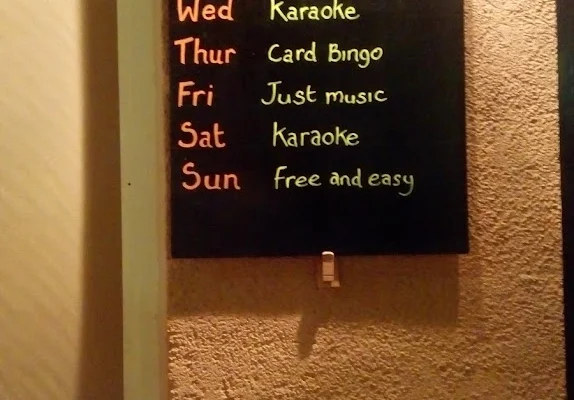 Wed Karaoke
Thur Card Bingo
Fri Just music
Sat Karaoke
Sun Free and easy